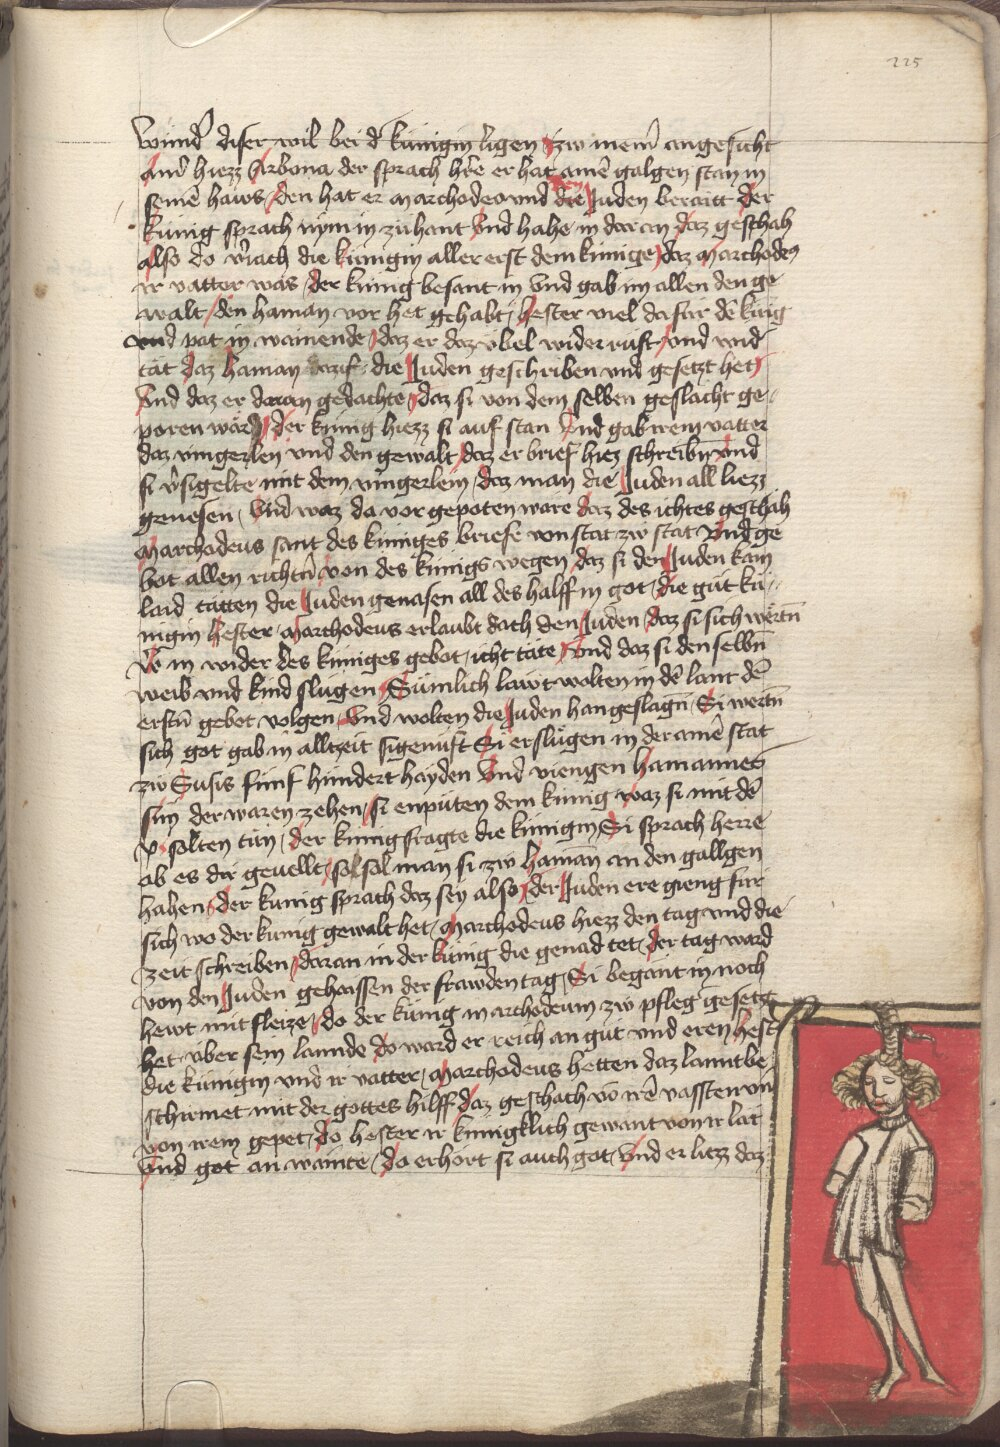 225
wund͛ diser wil bei d͛ kunigin ligen zw mein͛ angesicht
ain͛ hiezz Arbona der sprach h͛re er hat ainē galgen stan in
seinē haws den hat er marchodeo vnd den Juden berait der
kunig sprach nym in zuhant vnd hahe in dar an daz geschah
Also do v͛iach die kunigin aller erst dem kunige daz marchodeus
ir vatter was der kunig besant in vnd gab im allen den ge
walt den haman vor het gehabt hester viel da für dē künig
vnd pat in wainende daz er daz vbel widerrüft vnd vnd
tät daz haman auf die Juden geschriben vnd gesetzt het
Vnd daz er daran gedachte daz si von dem selben geslacht ge
poren wär der künig hiezz si auf stan Vnd gab irem vatter
daz vingerlen vnd den gewalt daz er brief hiez schreibn̄ vnd
si v͛sigelte mit dem vingerlein daz man die Juden all liezz
genesen Vnd waz da vor gepoten wäre daz des ichtes geschäh
Marchodeus sant des küniges briefe von stat zw stat Vnd ge
bot allen richtn̄ von des künigs wegen daz si den Juden kain
laid tätten die Juden genasen all des halff in got die güt kü
nigin hester marchodeus erlaubt dach den Juden daz si sich wertn̄
in wider des küniges gebot icht täte Vnd daz si den selbn̄
weib vnd kind slügen Sümlich lawt wolten in dē lant dē
erstn̄ gebot volgen Vnd wolten die Juden han geslagn̄ Si wertn̄
sich got gab in alltzeit sigenuft Si erslügen in der ainē stat
zw Susis fünf hundert hayden Vnd viengen hamannes
sün der waren zehen si enpüten dem künig waz si mit dē
solten tün der künig fragte die künigin Si sprach herre
ob es dir geuellt so sol man si zw haman an den gallgen
hahen der kunig sprach daz sey also der Juden ere gieng für
sich wo der kunig gewalt het marchodeus hiezz den tag vnd die
zeit schreiben daran in der künig die genad tet der tag ward
von den Juden gehaissen der frawden tag Si begant in noch
hewt mit fleize do der künig marchodeum zw pfleg gesetzt
het über sein lannde do ward er reich an güt vnd eren hest
die künigin vnd ir vatter marchodeus hetten daz lannt be
schirmet mit der gottes hilff daz geschach vō irē vassten vn̄
von irem gepet do hester ir künigklich gewant von ir lät
Vnd got an wainte do erhort si auch got Vnd er liezz daz